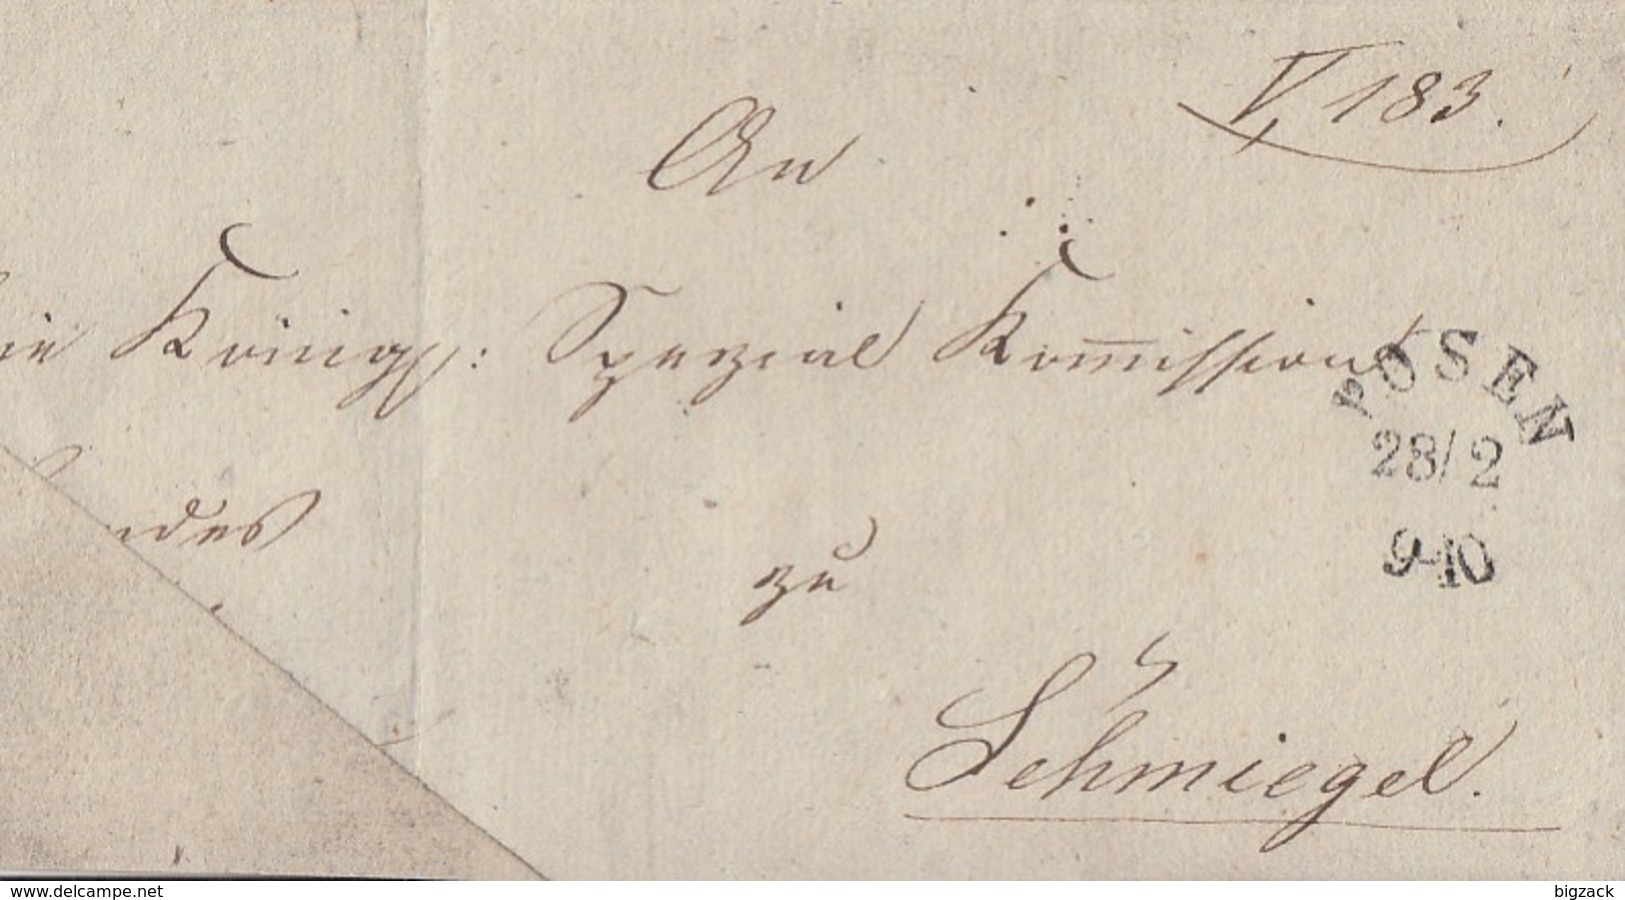 V, 183.
An
die Königl: Spezial Kommission
POSEN
28/2
9-10
zu
Schmiegel.
www.delcampe.net
bigzack